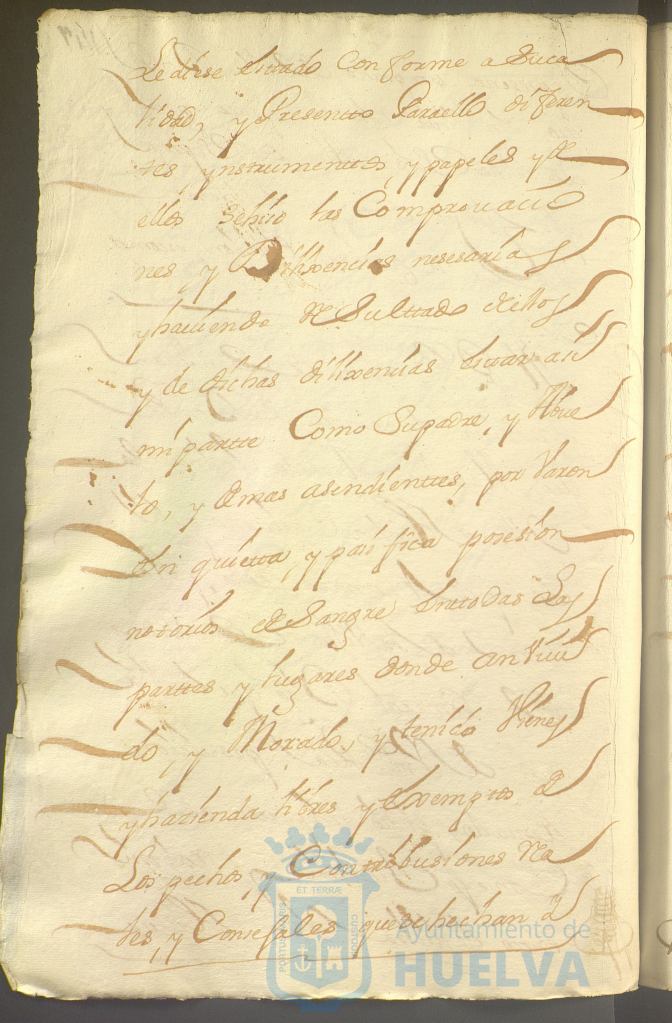 se diese estado Conforme a su ca
lidad, y Presento Para ello diferen
tes, ynstrumentos, y papeles y de
ellos sehizo las Comprouacio
nes y Dilixencias nesesarias
y hauiendo Resultado dellos
y de dichas dilixencias estar asi
mi partte Como Supadre, y Abue
lo, y demas asendienttes, por Varon
En quietta, y pasifica posesion
notorios de Sangre entodas las
parttes y lugares donde an Viui
do, y Morado, y tenido Vienes
y hazienda libres y Exemptos de
Los pechos, y Contribusiones Rea
les, y Consejales que se hechan y
ET TERRÆ
PORTUS MARIS
CUSTODIA
Ayuntamiento de
HUELVA